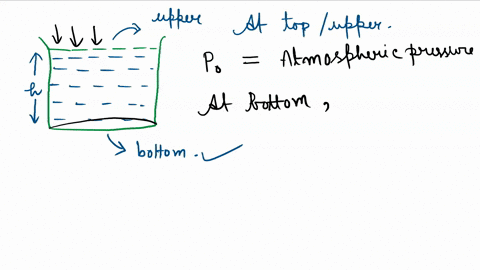 upper
At top/upper.
P₀ = Atmospheric pressure
h
At bottom,
bottom.